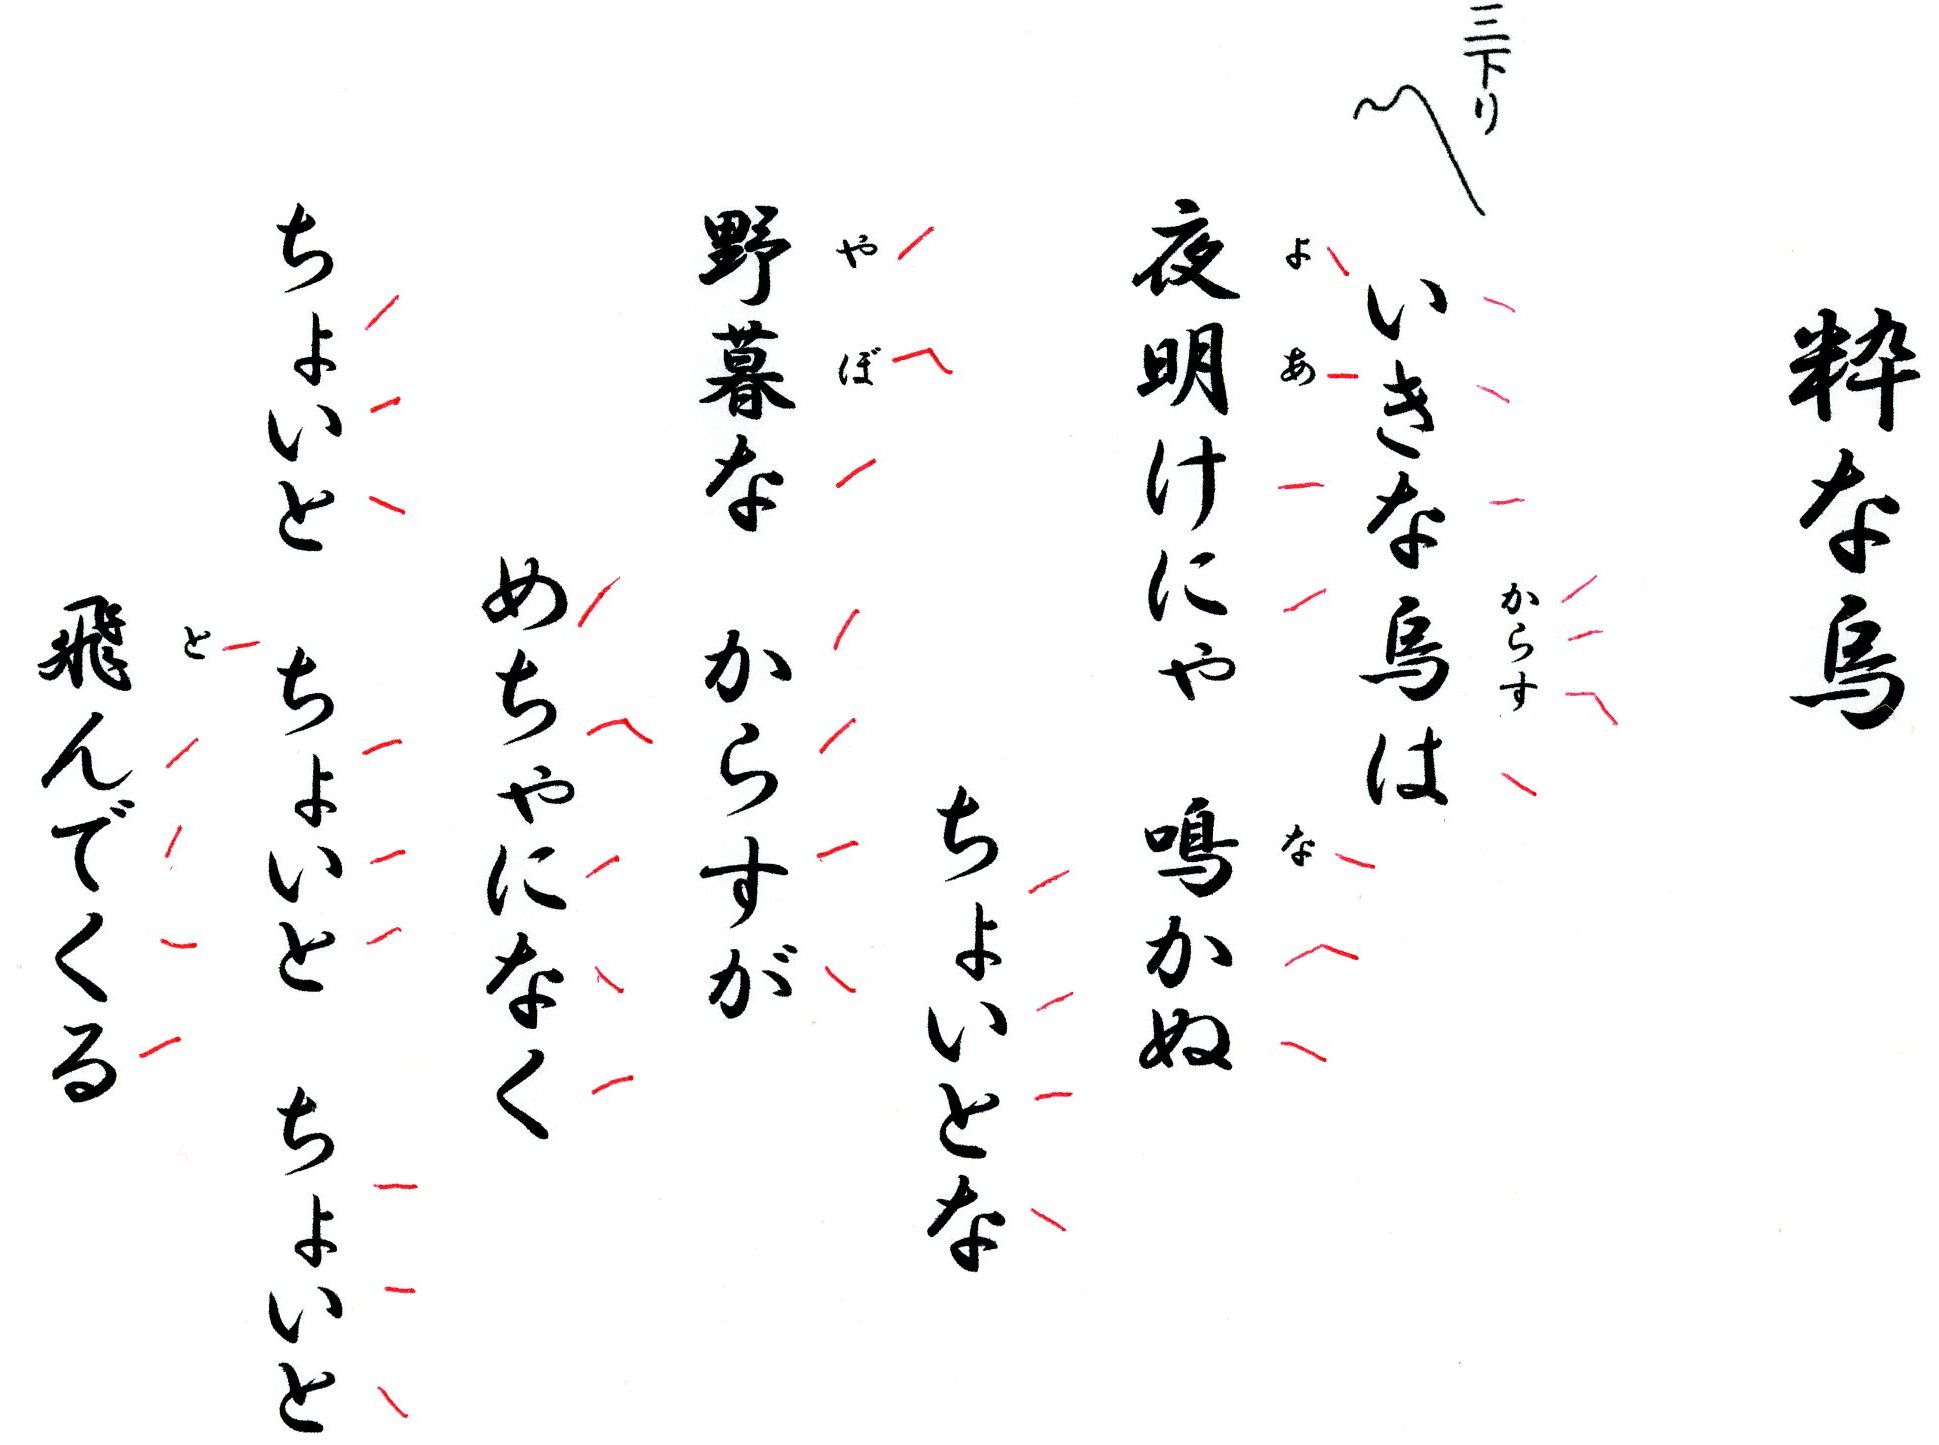 粋な烏
三下り
いきな烏は
からす
夜明けにゃ 鳴かぬ
よ あ な
ちょいとな
野暮な からすが
や ぼ
めちゃになく
ちょいと ちょいと ちょいと
飛んでくる
と